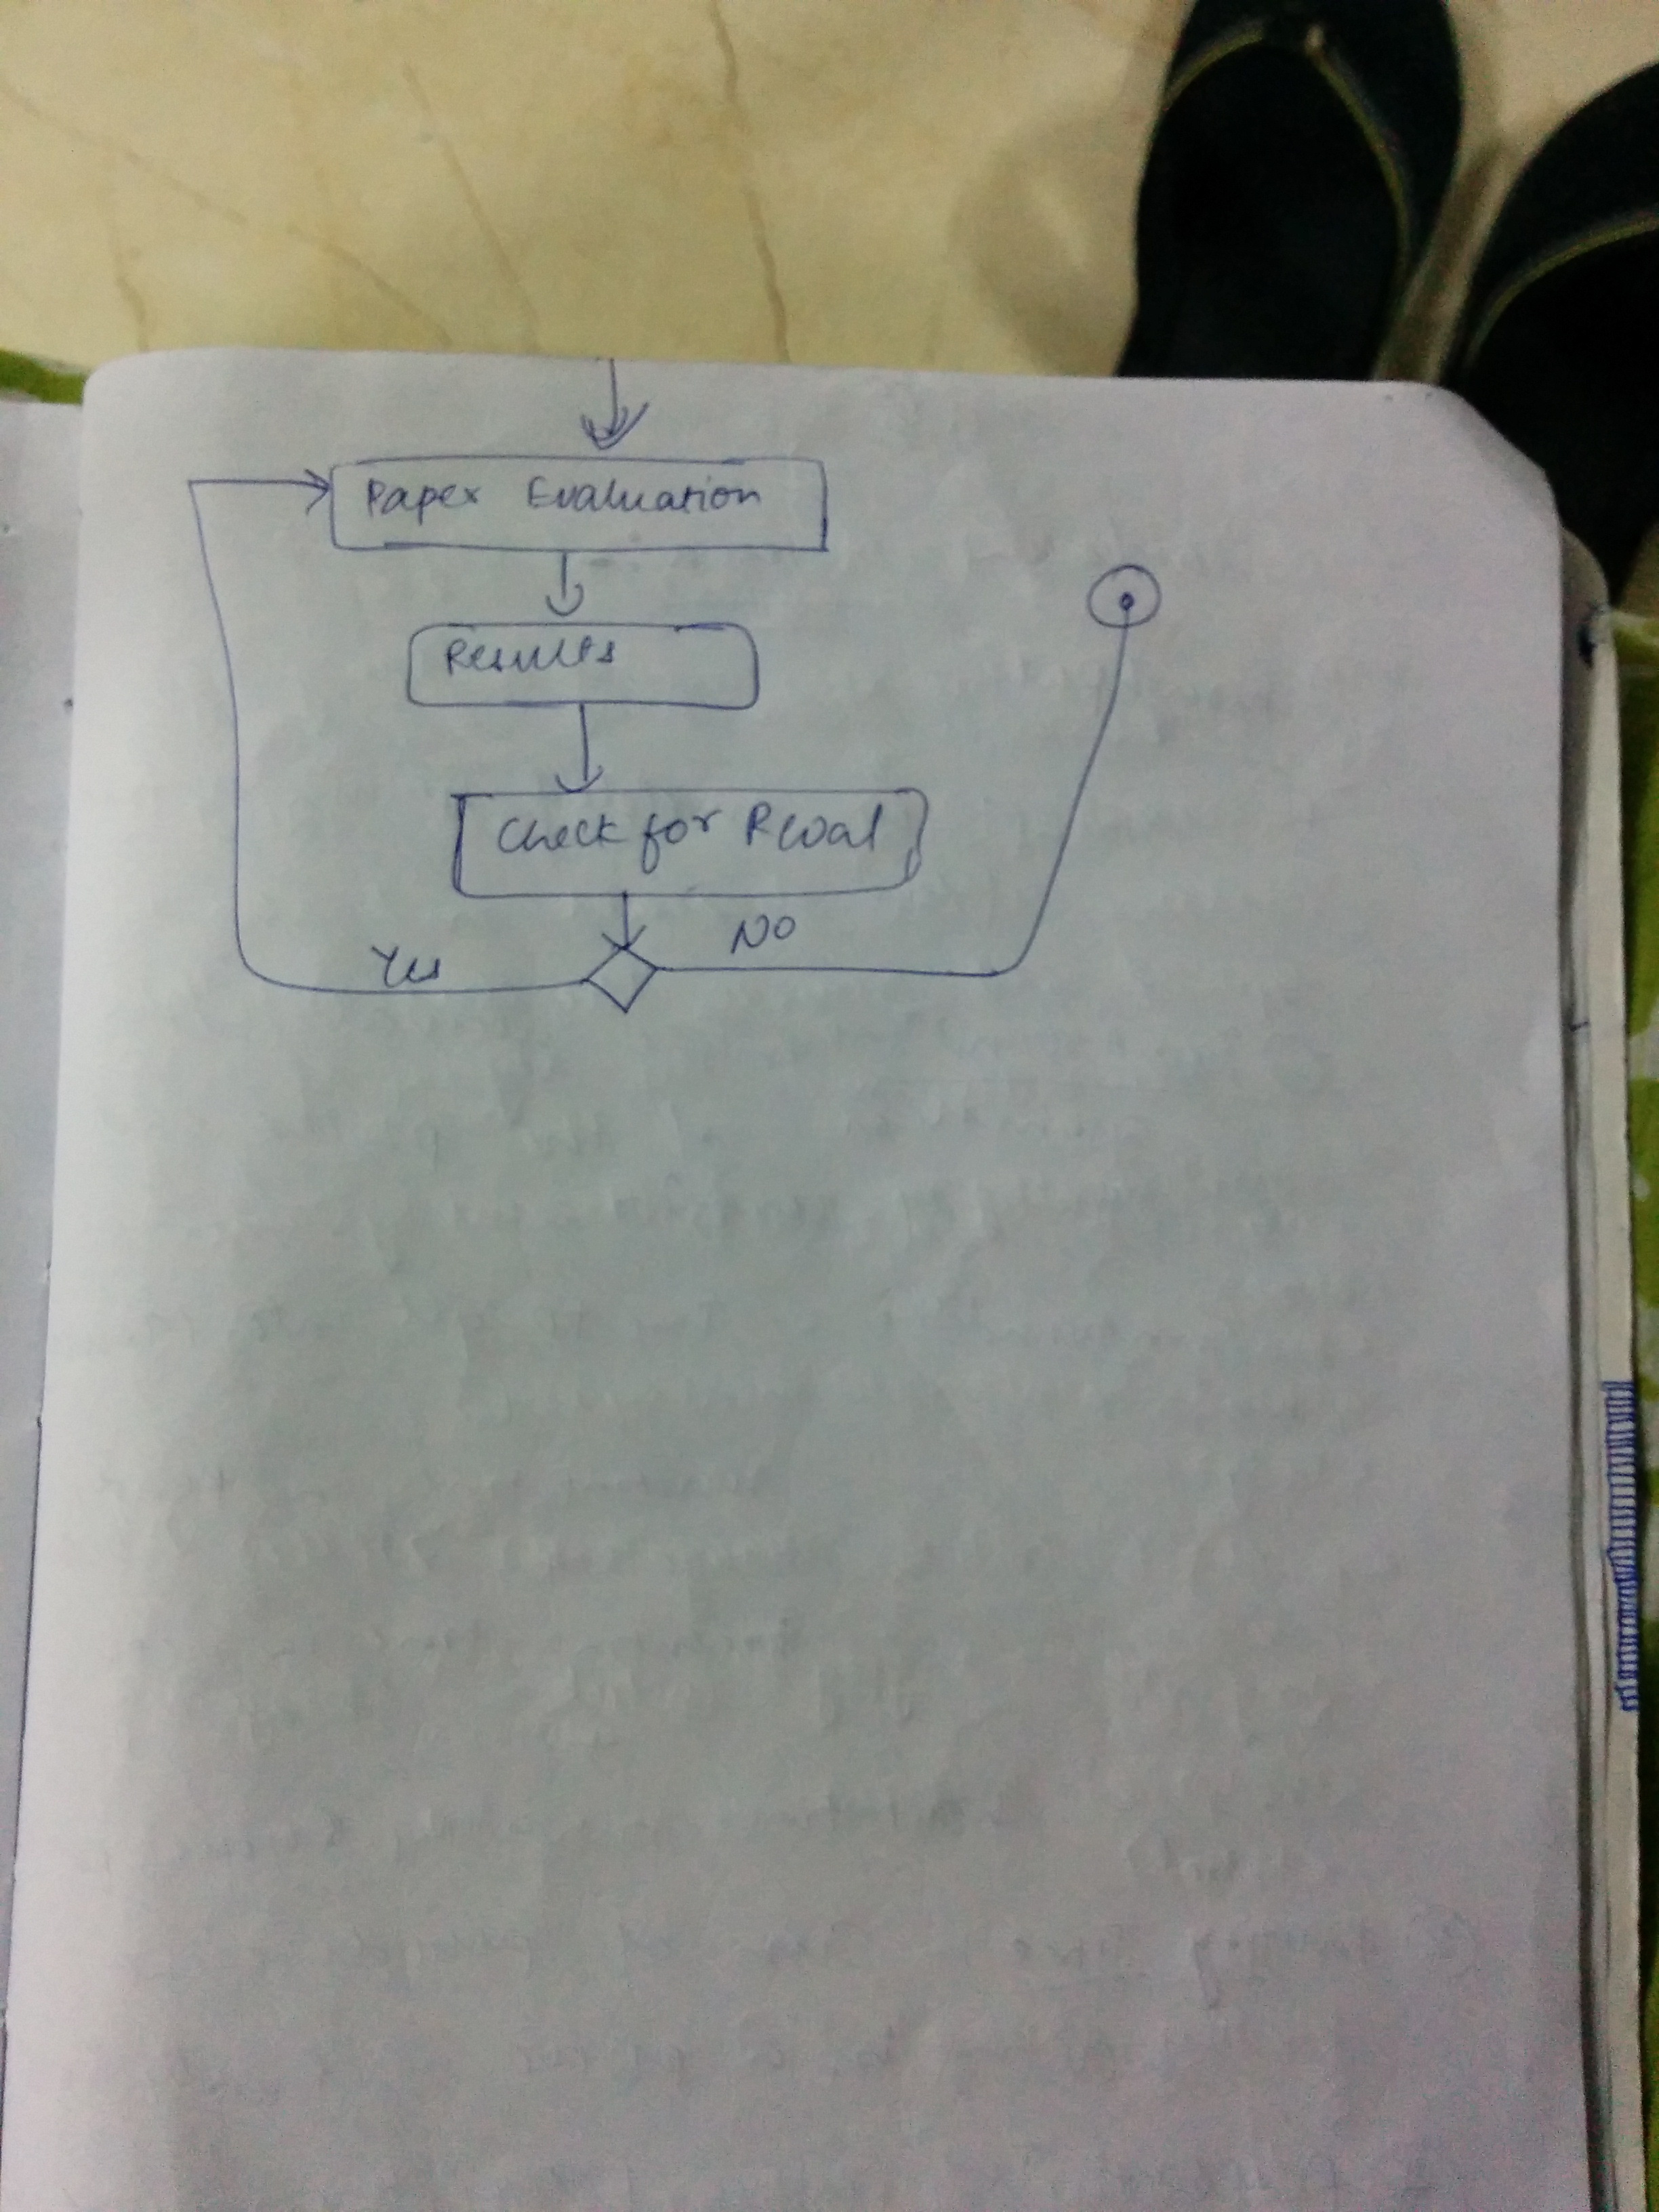 Paper Evaluation
Results
Check for Reval
NO
Yes